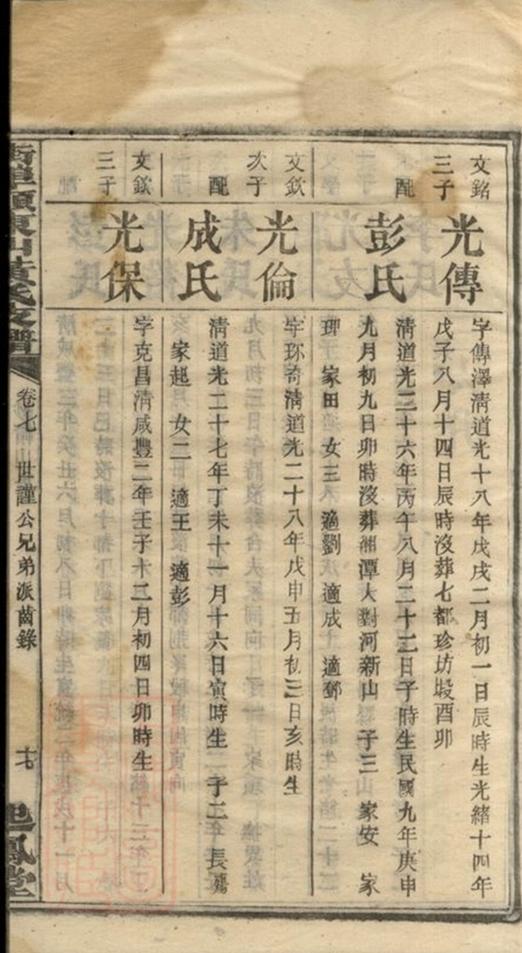 文銘
三子
光傳
字傳澤清道光十八年戊戌二月初一日辰時生光緒十四年
戊子八月十四日辰時沒葬七都珍坊塅酉卯
配
彭氏
清道光二十六年丙午八月二十三日子時生民國九年庚申
九月初九日卯時沒葬湘潭人對河新山 子三 家安 家
理 家田 女三 適劉 適成 適鄧
文欽
次子
光倫
字珍奇清道光二十八年戊申五月初三日亥時生
配
成氏
清道光二十七年丁未十一月十六日寅時生 子二 長殤
家起 女二 適王 適彭
文欽
三子
光保
字克昌清咸豐二年壬子十二月初四日卯時生
黃氏支譜
卷七 世謹公兄弟派齒錄